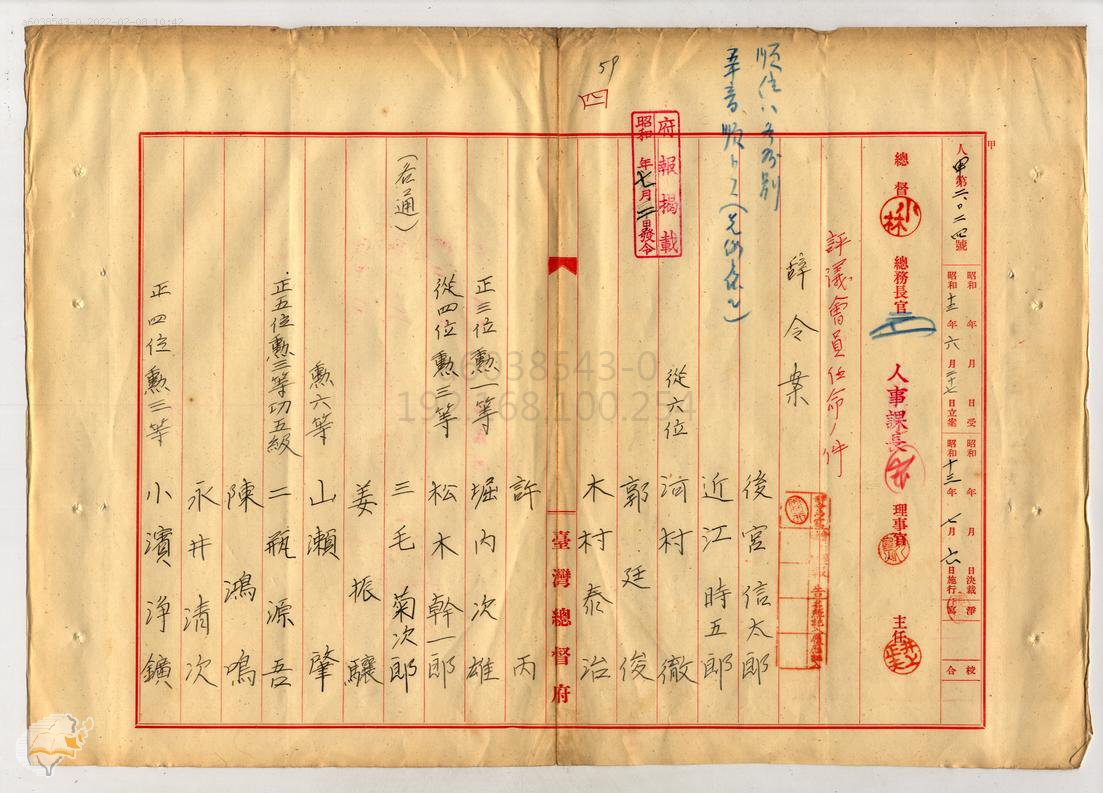 a6038543-0 2022-02-08 10:42
甲
人甲第二〇二四號
昭和 年 月 日受
昭和十三年六月二十七日立案
昭和 年 月 日決裁
昭和十三年七月 日施行
淨
校
合
總督
小林
總務長官
人事課長
理事官
主任
評議會員任命ノ件
辭令案
順位ハ
五十音順トス
59
四
府報揭載
昭和 年七月二日發令
後宮信太郎
近江時五郎
從六位 河村徹
郭廷俊
木村泰治
臺灣總督府
許丙
正三位勳一等 堀內次雄
從四位勳三等 松木幹一郎
三毛菊次郎
姜振驤
勳六等 山瀨肇
正五位勳三等功五級 二瓶源吾
陳鴻鳴
永井清次
正四位勳三等 小濱淨鑛
(各通)
a6038543-0
192.168.100.254